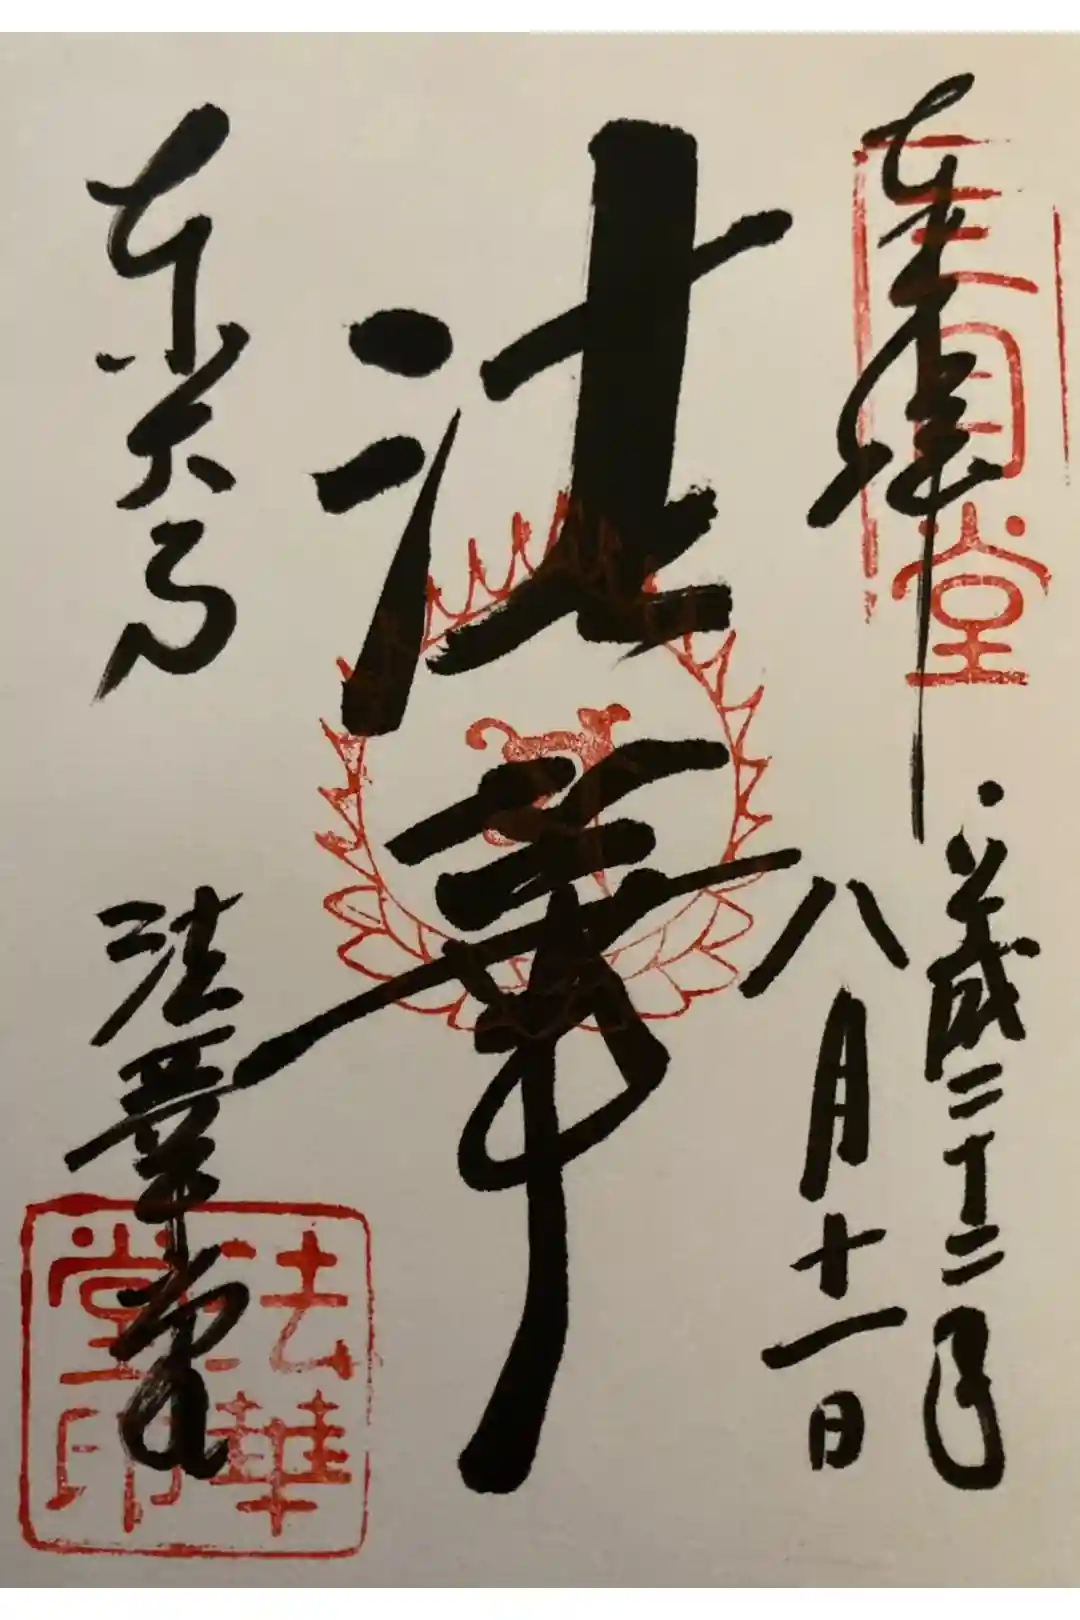 奉拝
三月堂
平成二十二年
八月十一日
法華
東大寺
法華堂
法華
堂印